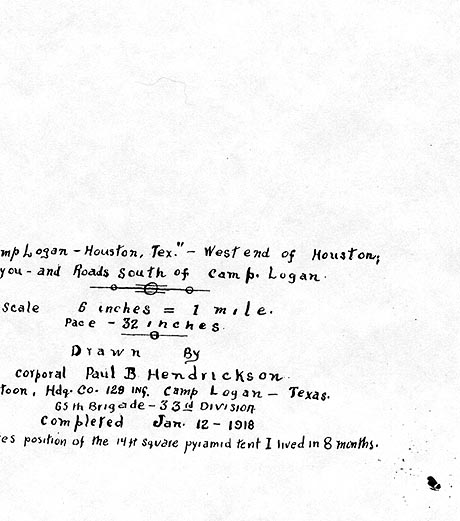 mp Logan - Houston, Tex." - West end of Houston,
you - and Roads south of camp. Logan.
scale 6 inches = 1 mile.
Pace - 32 inches.
Drawn By
corporal Paul B Hendrickson
toon, Hdq. Co. 129 Inf. Camp Logan - Texas.
65th Brigade - 33rd DIVISION
completed Jan. 12 - 1918
es position of the 14ft square pyramid tent I lived in 8 months.